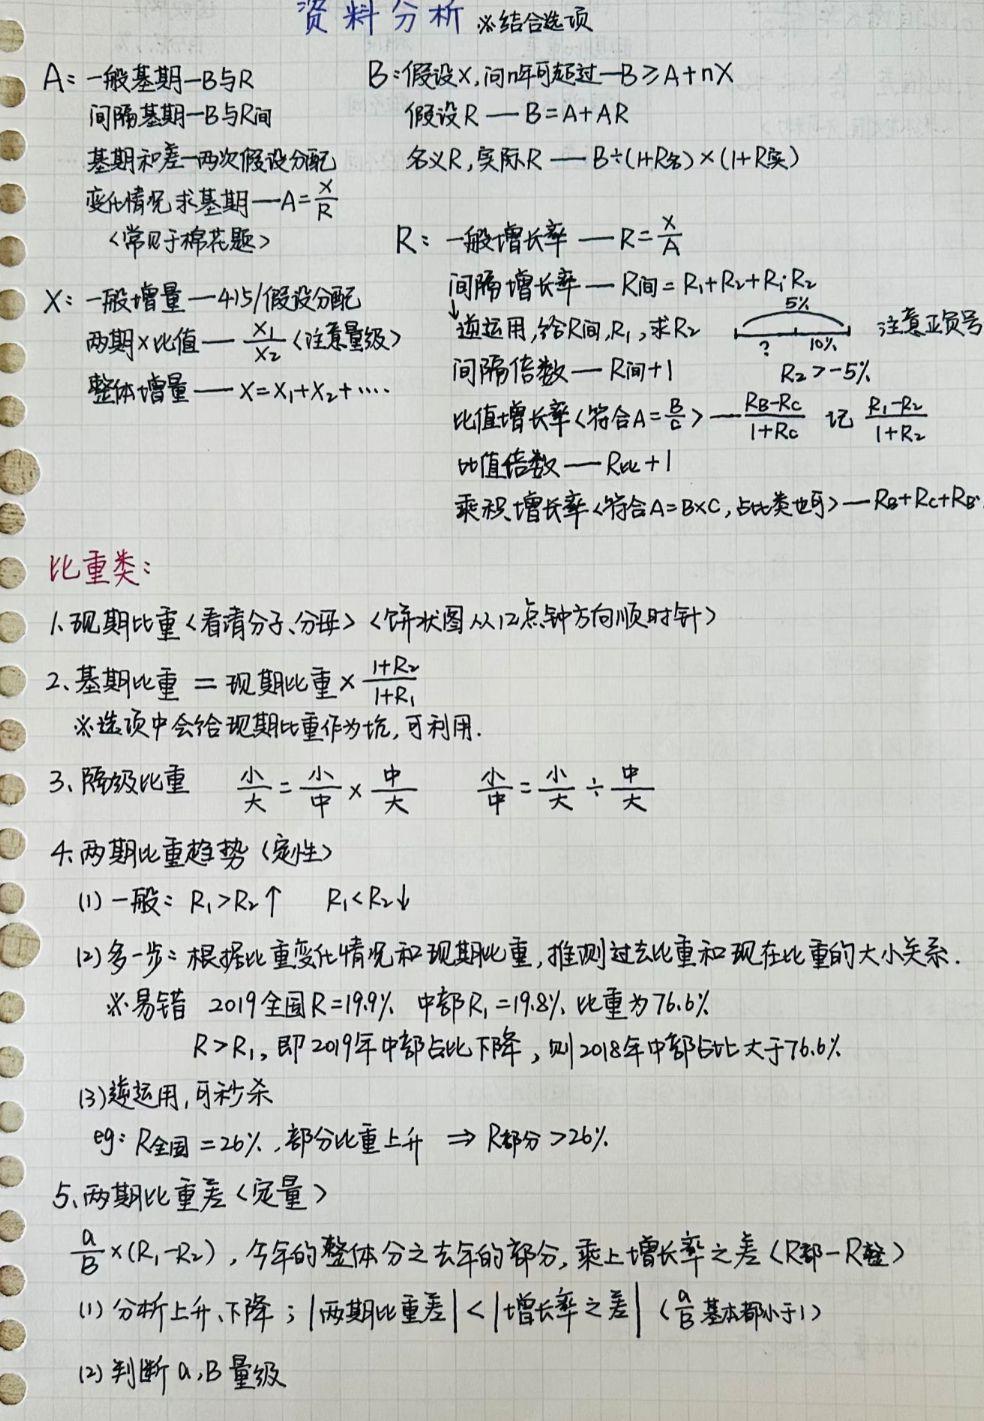 资料分析 ※结合选项
A：一般基期—B与R
间隔基期—B与R间
基期和差—两次假设分配
变化情况求基期—A=X/R
<常见于棉花题>
B：假设X,问n年可超过—B≥A+nX
假设R — B=A+AR
名义R,实际R — B÷(1+R名)×(1+R实)
X：一般增量—415/假设分配
两期X比值—X₁/X₂<注意量级>
整体增量—X=X₁+X₂+····
R：一般增长率—R=X/A
间隔增长率—R间=R₁+R₂+R₁·R₂
↓逆运用,给R间,R₁,求R₂ 5% ? 10% 注意正负号
R₂>-5%
间隔倍数—R间+1
比值增长率<符合A=B/C>—(RB-RC)/(1+RC) 记 (R₁-R₂)/(1+R₂)
比值倍数—R比+1
乘积增长率<符合A=B×C,占比类也可>—RB+RC+RB·
比重类：
1、现期比重<看清分子、分母><饼状图从12点钟方向顺时针>
2、基期比重=现期比重×(1+R₂)/(1+R₁)
※选项中会给现期比重作为坑,可利用.
3、降级比重 小/大=小/中×中/大 小/中=小/大÷中/大
4、两期比重趋势<定性>
(1)一般：R₁>R₂↑ R₁<R₂↓
(2)多一步：根据比重变化情况和现期比重,推测过去比重和现在比重的大小关系.
※易错 2019全国R=19.9% 中部R₁=19.8% 比重为76.6%
R>R₁,即2019年中部占比下降,则2018年中部占比大于76.6%
(3)逆运用,可秒杀
eg：R全国=26%,部分比重上升⇒R部分>26%
5、两期比重差<定量>
a/B×(R₁-R₂),今年的整体分之去年的部分,乘上增长率之差<R部-R整>
(1)分析上升、下降;|两期比重差|<|增长率之差|(a/B基本都小于1)
(2)判断a,B量级